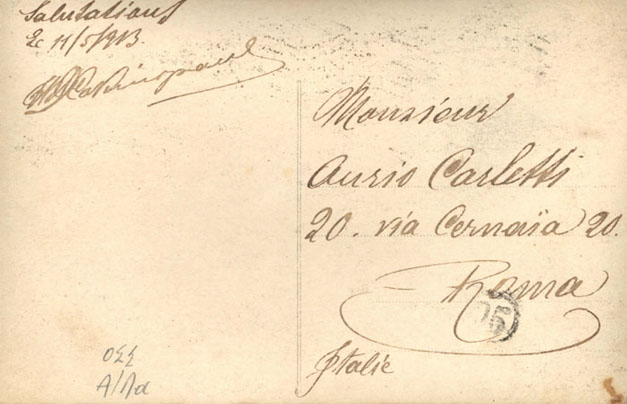 Salutations
Le 11/5/913.
Monsieur
Aurio Carletti
20. via Cernaïa 20.
Roma
Italie
ΟΣΣ
Α/Πα